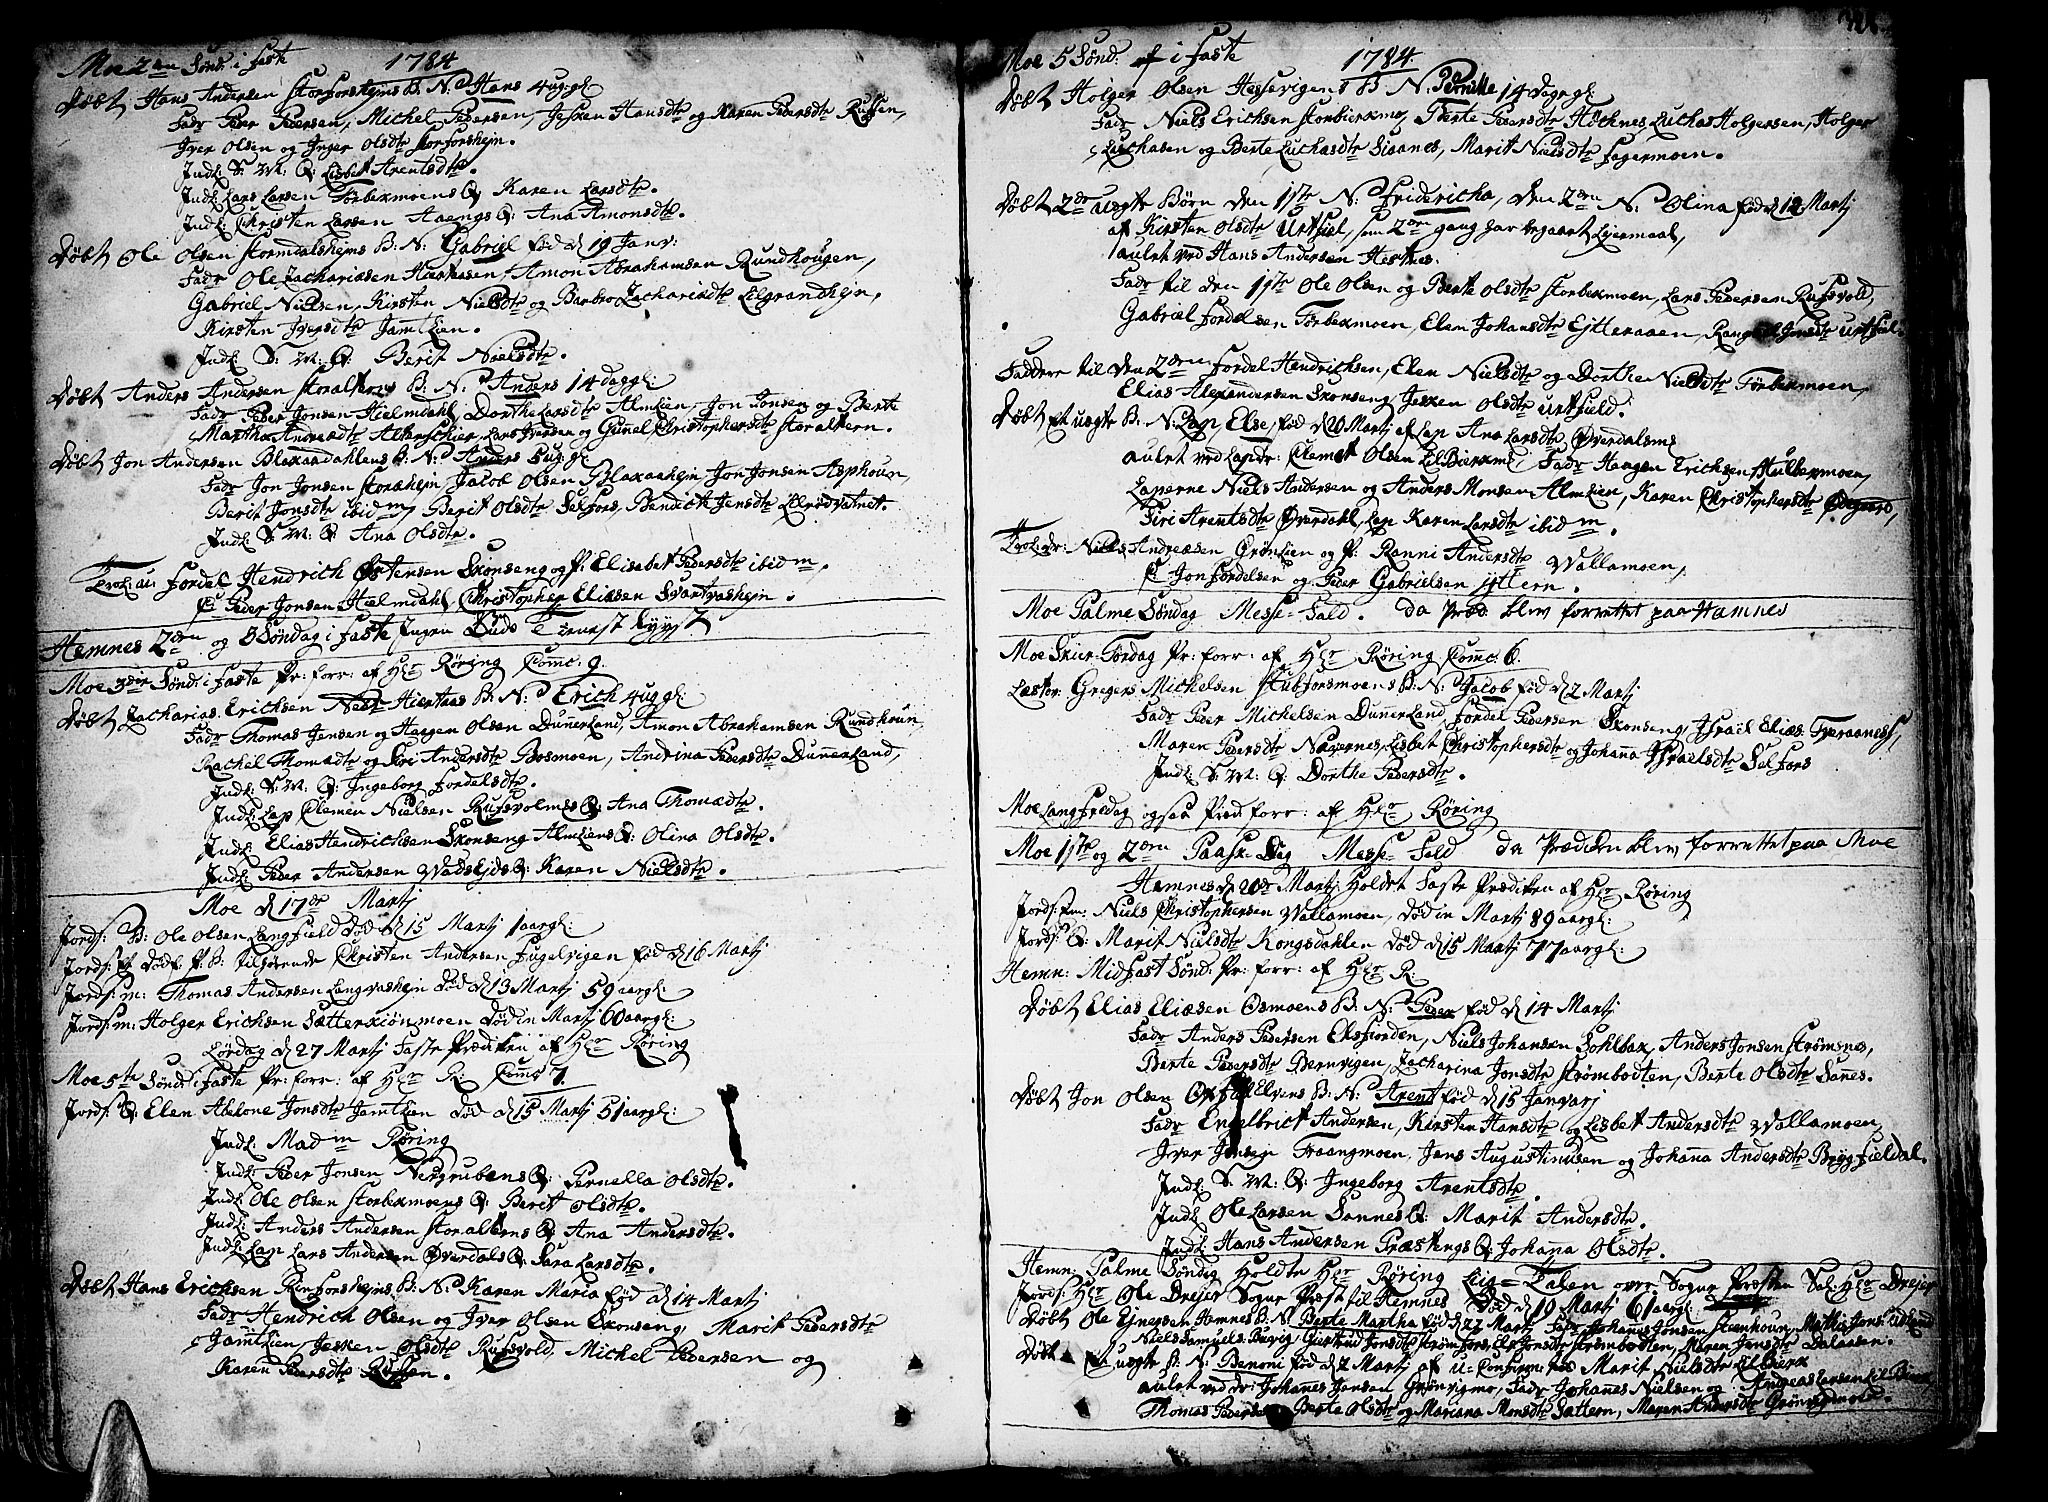 Moe 2den Sønd: i Faste 1784
Døbt Hans Andersen Storforshejms B: N: Hans 4 ug: gl:
Fadr Peer Pedersen, Michel Pedersen, Jesken Hansdtr og Karen Pedersdtr Røssen,
Iver Olsen og Inger Olsdtr Storforshejm.
Indl: S: M: Q: Lisbet Arentsdtr.
Indl: Lars Larsen Torbekmoens Q: Karen Larsdtr.
Indl: Christen Larsen Aaengs Q: Ana Amonsdtr.
Døbt Ole Olsen Stormdalshejms B: N: Gabriel fød d 19 Janv:
Fadr Ole Zachariæsen Amon Abrahamsen Rundhougen,
Gabriel Nielsen, Kirsten Nielsdtr og Barbro Zacharisdtr Lilgrandhejn,
Kirsten Iversdtr Jamtlien.
Indl: S: M: Q: Berit Nielsdtr.
Døbt Anders Andersen Storalterns B: N: Anders 14 dag: gl:
Fadr Peder Jonsen Hielmdahl, Dorthe Larsdtr Almlien, Jon Jonsen og Berte
Martha Andreædtr Alterschier, Lars Iversen og Gunel Christophersdtr Storaltern.
Døbt Jon Andersen Blakaadahlens B: N: Anders 5 ug: gl:
Fadr Jon Jonsen Storæhejn, Jacob Olsen Blakaahejn Jon Jonsen Asphoun,
Berit Jonsdtr ibidm, Berit Olsdtr Selfors, Bendickt Jensdtr Lilrødvatnet.
Indl: S: M: Q: Ana Olsdtr.
Trol: au: Fordel Hendrich Ostensen Skonseng og P: Elisabet Pedersdtr ibidm,
C: Peder Jonsen Hielmdahl, Christopher Eliæsen Svartvashejn.
Hemnes 2den og 3 Søndag i Faste Ingen Guds Tienest
Moe 3die Sønd: i Faste Pr: forr: af Hr: Røring Comc: 9.
Døbt Zacharias Erichsen Hiertaas B: N: Erich 4 ug: gl:
Fadr Thomas Jensen og Haagen Olsen Dunerland, Amon Abrahamsen Rundhoun,
Rachel Thomædtr og Siri Andersdtr Bosmoen, Andrina Pedersdtr Dunerland,
Indl: S: M: Q: Ingeborg Fordelsdtr.
Indl: Lap Clemen Nielsen Rufsvolms Q: Ana Thomædtr.
Indl: Elias Hendrichsen Skonseng Almliens Q: Olina Olsdtr.
Indl: Peder Andersen Vadslids Q: Karen Nielsdtr.
Moe d 17de Martj
Jords: B: Ole Olsen Langfield død d 15 Martj 1 aar gl:
Jords: et dødf: P: B: tilhørende Christen Andersen Fugelvigen fød d 16 Martj
Jords: m: Thomas Andersen Langvashejn død d 13 Martj 59 aar gl:
Jords: m: Holger Erichsen Sætterkiønmoen død in Martj 60 aar gl:
Lørdag d 27 Martj Faste Prædiken af Hr: Røring
Moe 5te Sønd: i Faste Pr: forr: af Hr: R: Comc 7.
Jords: Q: Elen Abelone Jonsdtr Jamtlien død d 15 Martj 51 aar gl:
Indl: Madm Røring
Indl: Peder Jonsen Nergrubens Q: Pernella Olsdtr.
Indl: Ole Olsen Storbekmoens Q: Berit Olsdtr.
Indl: Anders Andersen Storalterns Q: Ana Andersdtr.
Indl: Lap Lars Andersen Øverdals Q: Sara Larsdtr.
Døbt Hans Erichsen Rinforshejms B: N: Karen Maria fød d 14 Martj
Fadr Hendrich Olsen og Iver Olsen Skonseng, Marit Pedersdtr
Jamtlien, Jesken Olsdtr Rufsvold, Michel Pedersen og
Karen Pedersdtr Røssen.
Moe 5 Sønd: i Faste 1784
Døbt Holger Olsen Hessevigens B: N: Pernille 14 dag: gl:
Fadr Niels Erichsen Storbiærkmo, Berte Pedersdtr Høknes, Luchas Holgersen, Holger
Luchasen og Berte Luchasdtr Sisanes, Marit Nielsdtr Fagermoen.
Døbt 2de uægte Børn den 1ste N: Fridericha, den 2den N: Olina fød d 12 Martj
af Kirsten Olsdtr Urtfiel, som 2den gang har begaaet Lejermaal,
aulet ved Hans Andersen Hestnes.
Fadr til den 1ste Ole Olsen og Berte Olsdtr Storbekmoen, Lars Pedersen Rufsvold,
Gabriel Fordelsen Torbekmoen, Elen Johansdtr Ejtteraaen, Jonsdtr Urtfiel.
Faddere til den 2den Fordel Hendrichsen, Elen Nielsdtr og Dorthe Nielsdtr Torbekmoen,
Elias Alexandersen Skonseng, Jesken Olsdtr Urtfield.
Døbt et uægte B: N: Lap, Else, fød d 20 Martj af Lap Ana Larsdtr Øverdalsms
aulet ved Lapdr: Clemet Olsen Lilbierkmo, Fadr Haagen Erichsen Hulbekmoen,
Laperne Niels Andersen og Anders Monsen Almlien, Karen Christophersdtr
Siri Arentsdtr Øverdahl, Lap Karen Larsdtr ibidm.
Trol: dr: Niels Andreæsen Grønlien og P: Ranni Andersdtr Vallamoen,
C: Jon Fordelsen og Peder Gabrielsen Yttern.
Moe Palme Søndag Messe-Fald. da Præd: blev forrettet paa Hemnes
Moe Skier-Torsdag Pr: forr: af Hr: Røring Comc: 6.
Læstor: Gregers Michelsen Stubforsmoens B: N: Jacob fød d 2 Martj
Fadr Peder Michelsen Dunerland, Fordel Pedersen Skonseng, Israel Eliæs: Tveraaness,
Maren Pedersdtr Nævernes, Lisbet Christophersdtr og Johanna Israelsdtr Selfors
Indl: S: M: Q: Dorthe Pedersdtr.
Moe Langfredag ogsaa Præd: forr: af Hr: Røring
Moe 1ste og 2den Paask-Dag Messe-Fald da Prædiken blev forrettet paa Moe
Hemnes d 20de Martj Holdet Faste Prædiken af Hr: Røring
Jords: m: Niels Christophersen Vallamoen, død in Martj 89 aar gl:
Jords: Q: Marit Nielsdtr Kongsdahlen død d 15 Martj 77 aar gl:
Hemn: Midfast Sønd: Pr: forr: af Hr: R:
Døbt Elias Eliæsen Osmoens B: N: Peder fød d 14 Martj
Fadr Anders Pedersen Elsfiorden, Niels Johansen Sohlbak, Anders Jonsen Strømsnes,
Berte Pedersdtr Bernvigen, Zacharina Jonsdtr Strømbodten, Berte Olsdtr Sanes.
Døbt Jon Olsen Oxfielelvens B: N: Arent fød d 15 Janvarj
Fadr Engelbrict Andersen, Kirsten Hansdtr og Lisbet Andersdtr Vallamoen,
Iver Jonsen Traangmoen, Jens Augustinusen og Johana Andersdtr Brygfieldal.
Indl: S: M: Q: Ingeborg Arentsdtr.
Indl: Ole Larsen Sannes Q: Marit Andersdtr.
Indl: Hans Andersen Præstengs Q: Johana Olsdtr.
Hemn: Palme Søndag Holdte Hr: Røring Lig-Talen over Sogne Præsten Sal: Hr: Drejer
Jords: Hr: Ole Drejer Sogne Præst til Hemnes død d 19 Martj 61 aar gl:
Døbt Ole Ejnersen Hemnes B: N: Berte Martha fød d 22 Mart: Fadr Johanes Jonsen Stenhoun,
Niels Samuels: Bugvig, Giertrud Jonsdtr Strømfors, Elen Jonsdtr Strømbodten, Maren Jensdtr Dalaasen.
Døbt Et uægte B: N: Benoni fød d 2 Martj af u: Confirm: Marit Nielsdtr Lilbierk
aulet ved dr: Johanes Jensen Grønvigmo, Fadr Johanes Nielsen og Andreas Larsen
Thomas Pedersen, Berte Olsdtr og Mariana Monsdtr Sættern, Maren Andersdtr